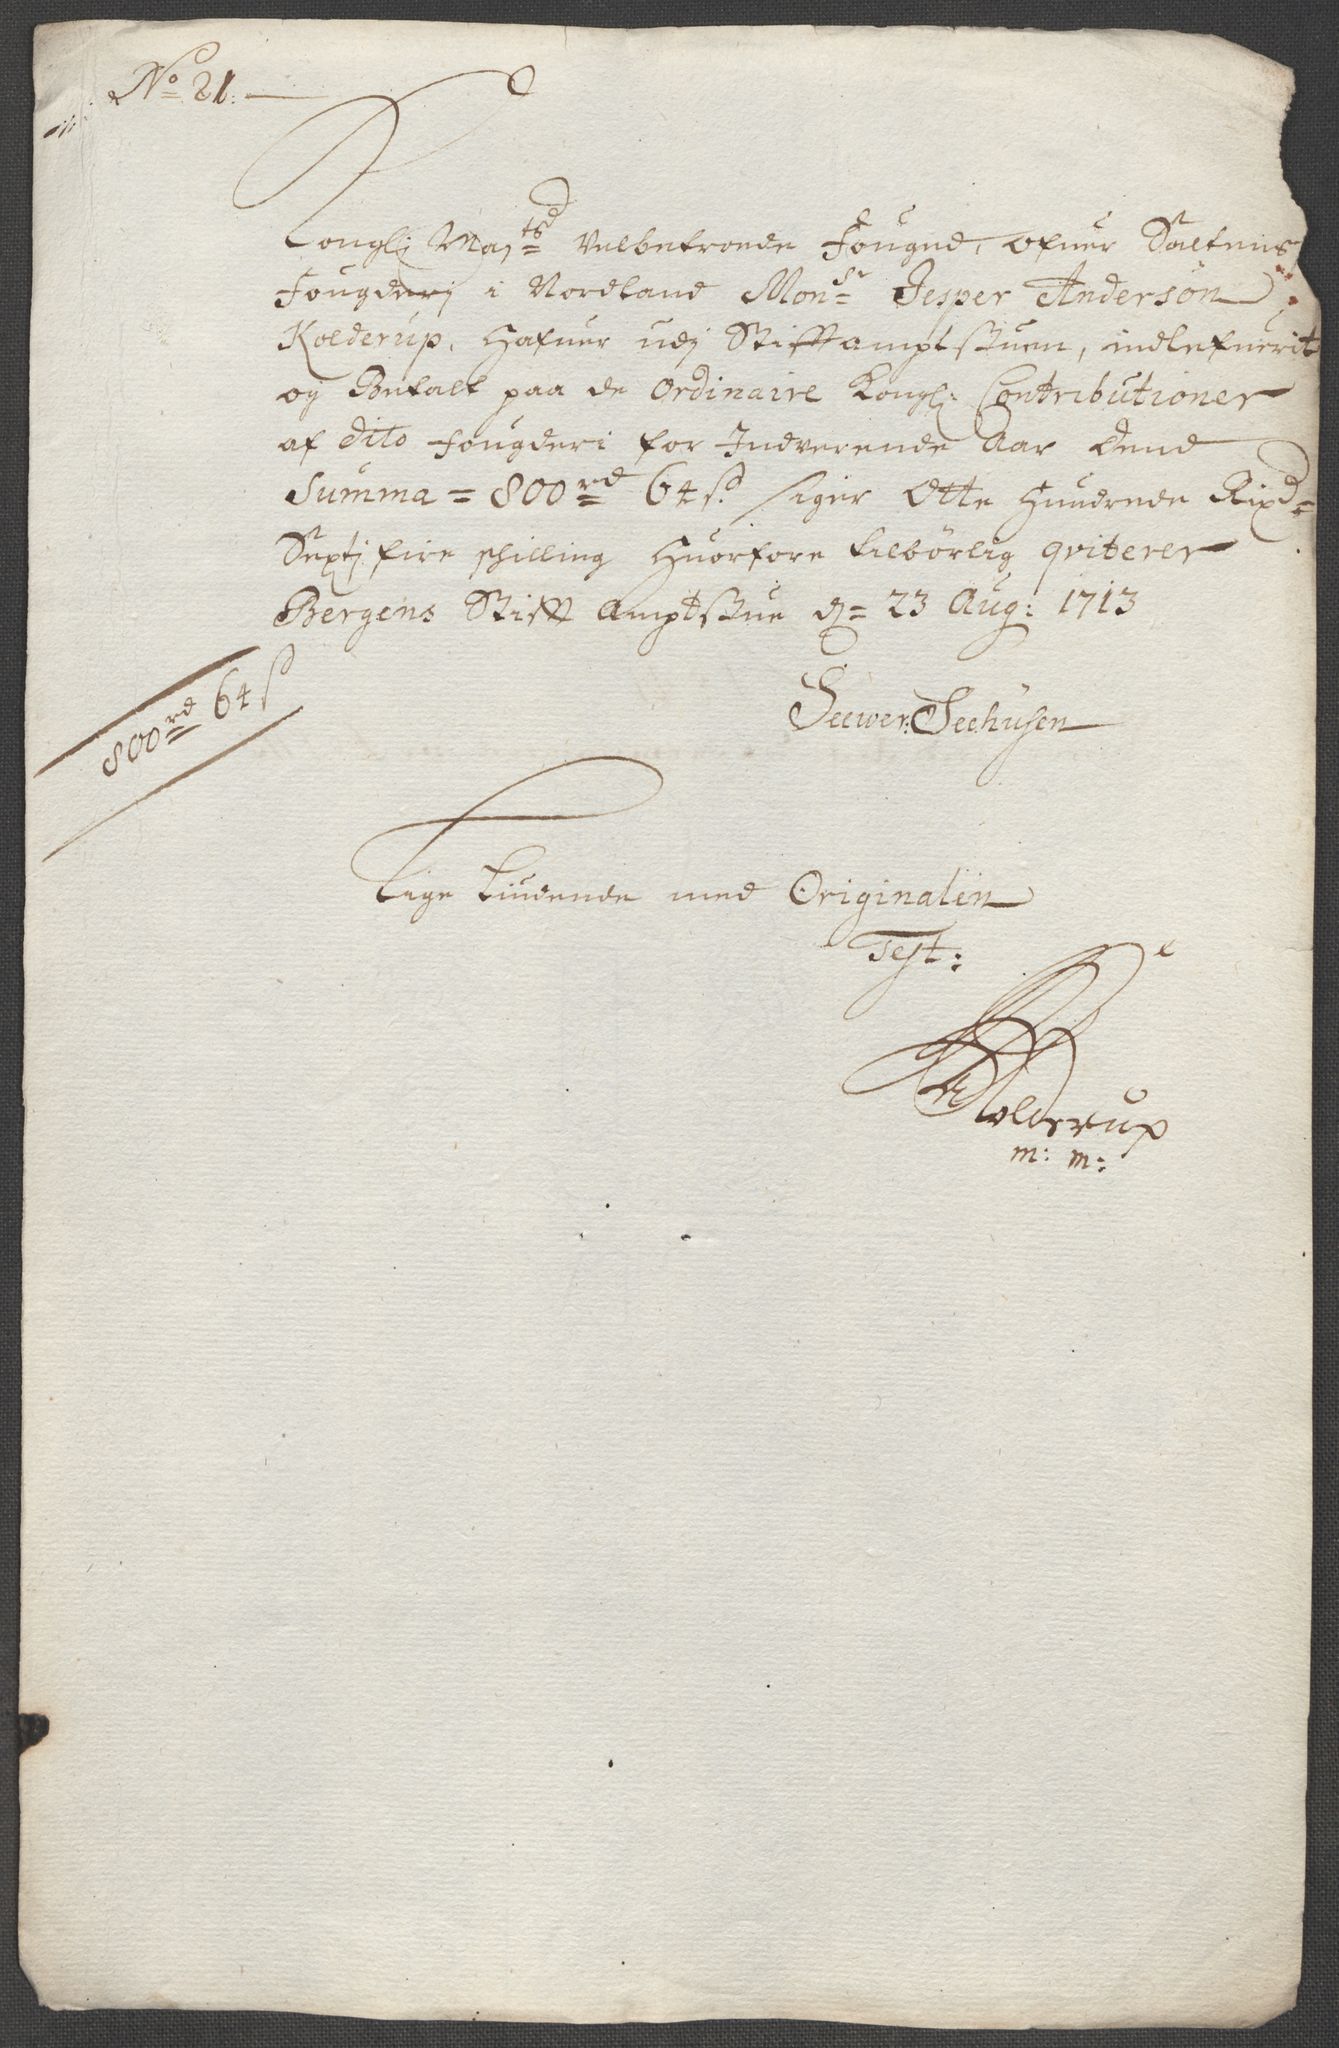 No 21.
Kongl: Maj:ts Velbetroede Fouged, ofuer Saltens
Fougderj i Nordland Mons:r Jesper Andersøn
Kolderup, Hafuer udj Stifftamptstuen, indlefuerit
og Betalt paa de Ordinaire Kongl: Contributioner
af dito fougderi for Indverende Aar dend
Summa = 800 rd 64 s. siger Otte Hundrede Rixd
Sextj fire schilling Huorfore tilbørlig qviterer
Bergens Stifft Amptstue d= 23 Aug: 1713
800 rd 64 s
Seewer: Seehusen
Lige liudende med Originalen
Test:
Kolderup
m: m: